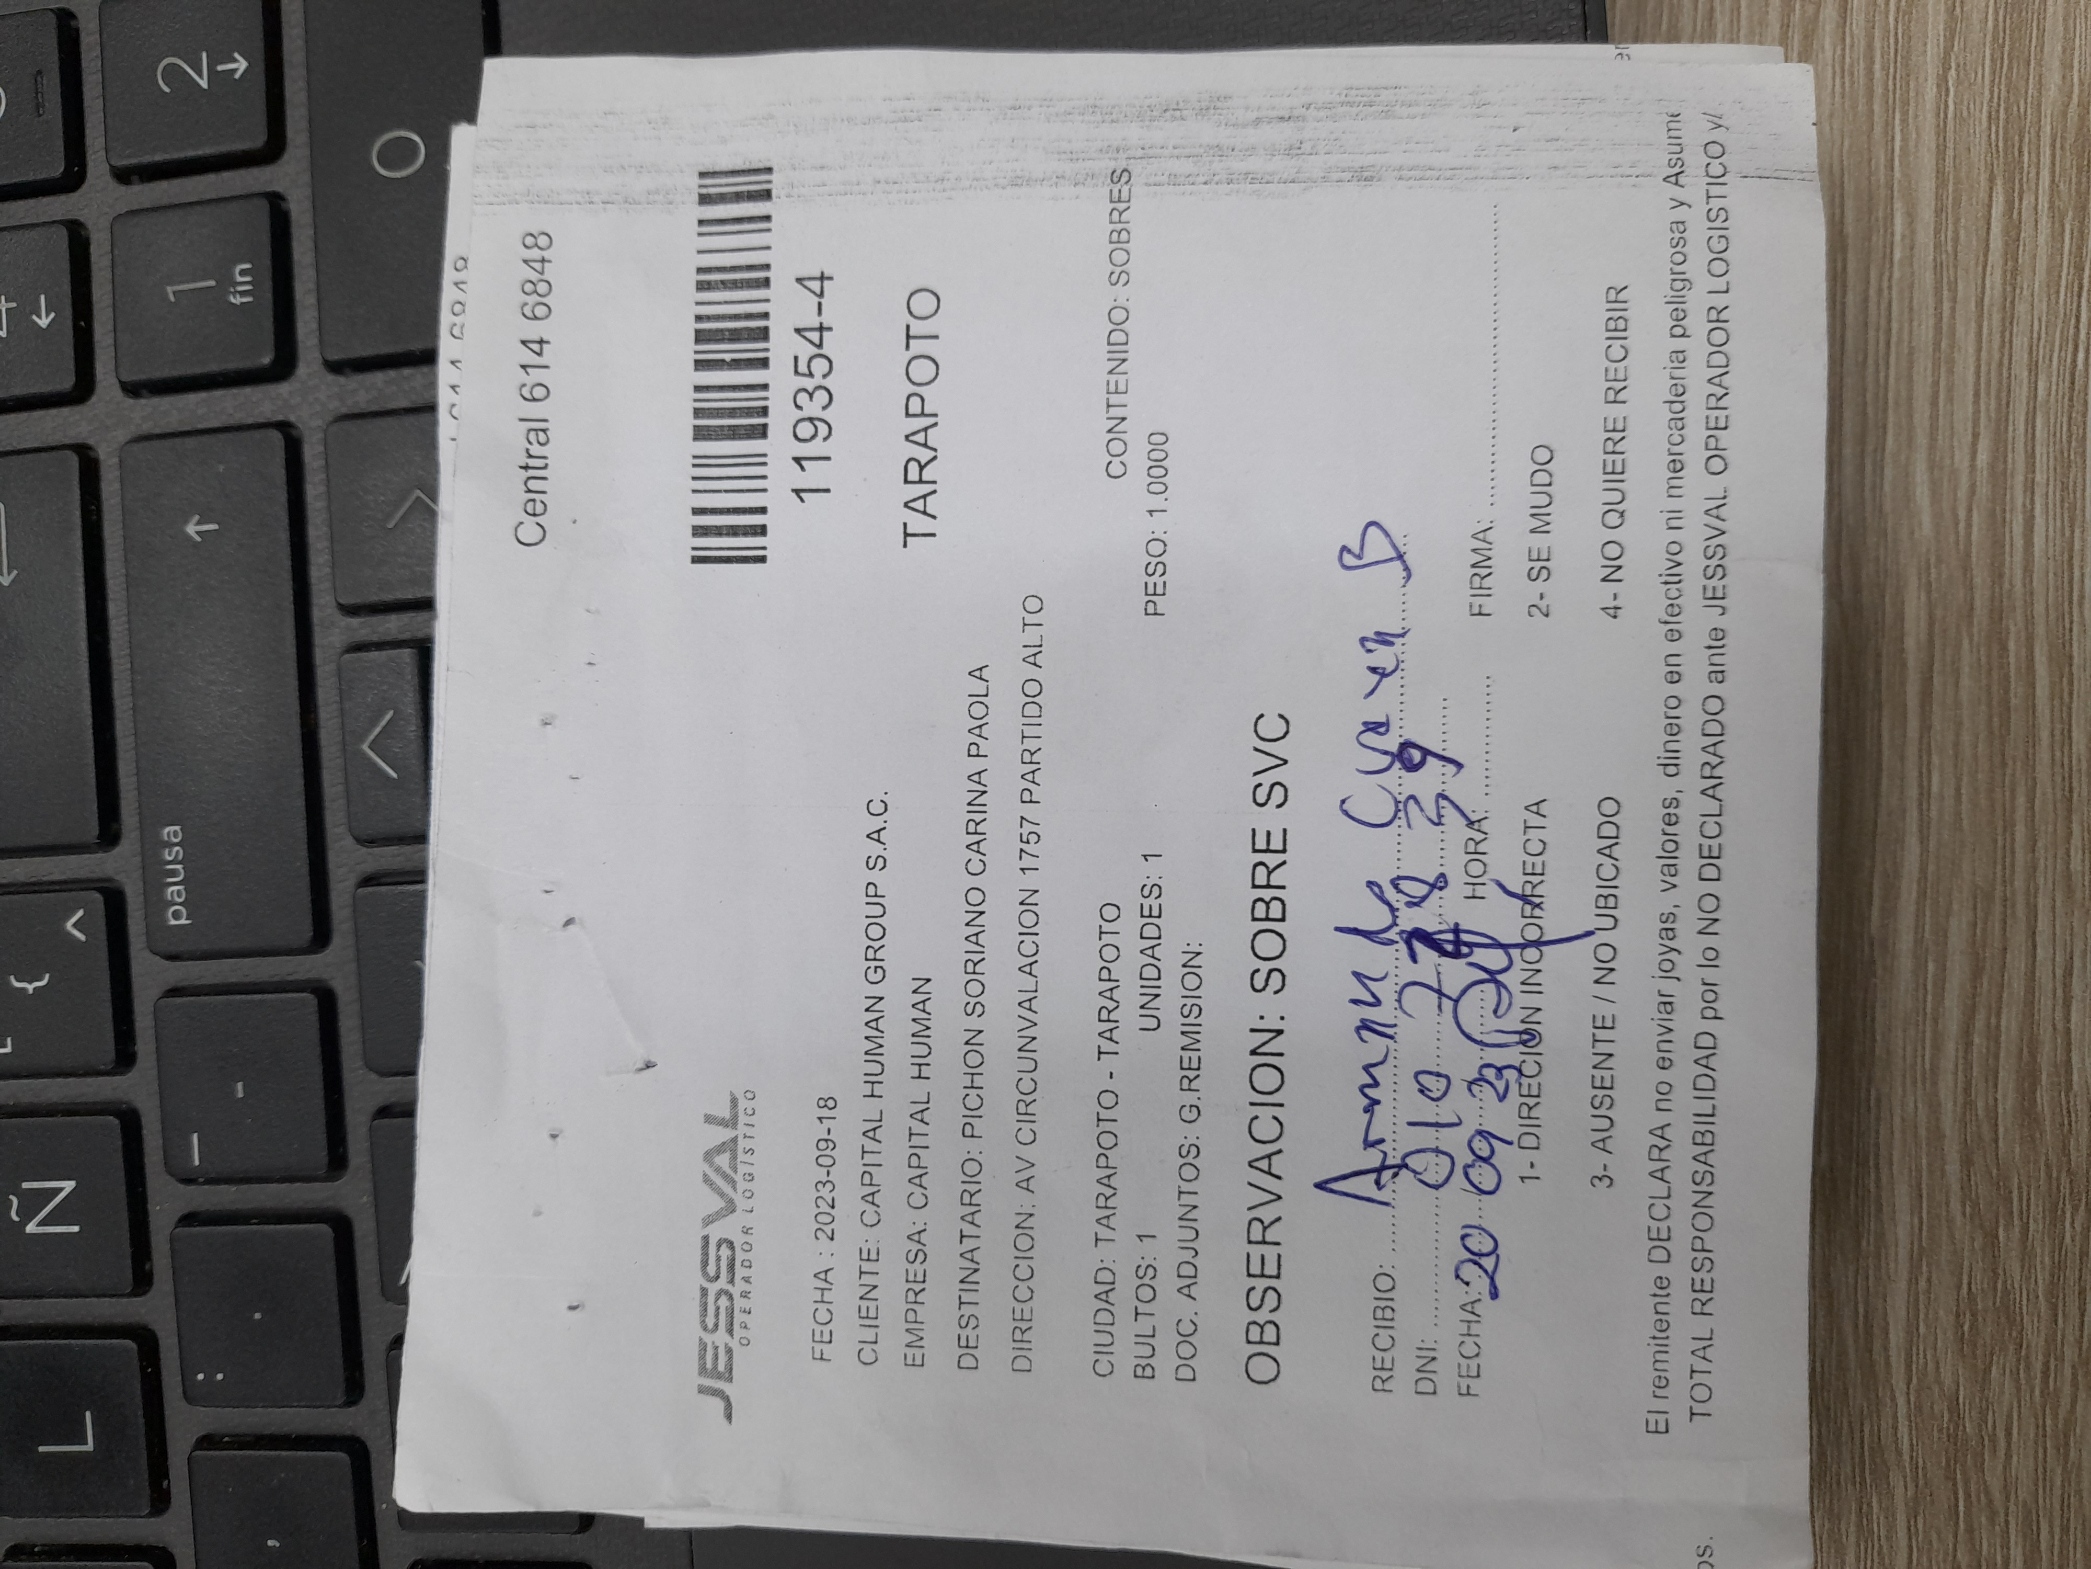 L Ñ { ^ 4 ←
: . _ - pausa ↑ 1 fin 2 ↓
, 0
614 6848
Central 614 6848
JESSVAL
OPERADOR LOGÍSTICO
119354-4
FECHA : 2023-09-18
CLIENTE: CAPITAL HUMAN GROUP S.A.C.
EMPRESA: CAPITAL HUMAN
TARAPOTO
DESTINATARIO: PICHON SORIANO CARINA PAOLA
DIRECCION: AV CIRCUNVALACION 1757 PARTIDO ALTO
CIUDAD: TARAPOTO - TARAPOTO
CONTENIDO: SOBRES
BULTOS: 1 UNIDADES: 1 PESO: 1.0000
DOC. ADJUNTOS: G.REMISION:
OBSERVACION: SOBRE SVC
RECIBIO: Armando B
DNI:
FECHA: 20/09/23 HORA: FIRMA:
1- DIRECION INCORRECTA 2- SE MUDO
3- AUSENTE / NO UBICADO 4- NO QUIERE RECIBIR
El remitente DECLARA no enviar joyas, valores, dinero en efectivo ni mercaderia peligrosa y Asume
TOTAL RESPONSABILIDAD por lo NO DECLARADO ante JESSVAL OPERADOR LOGISTICO y/
os.